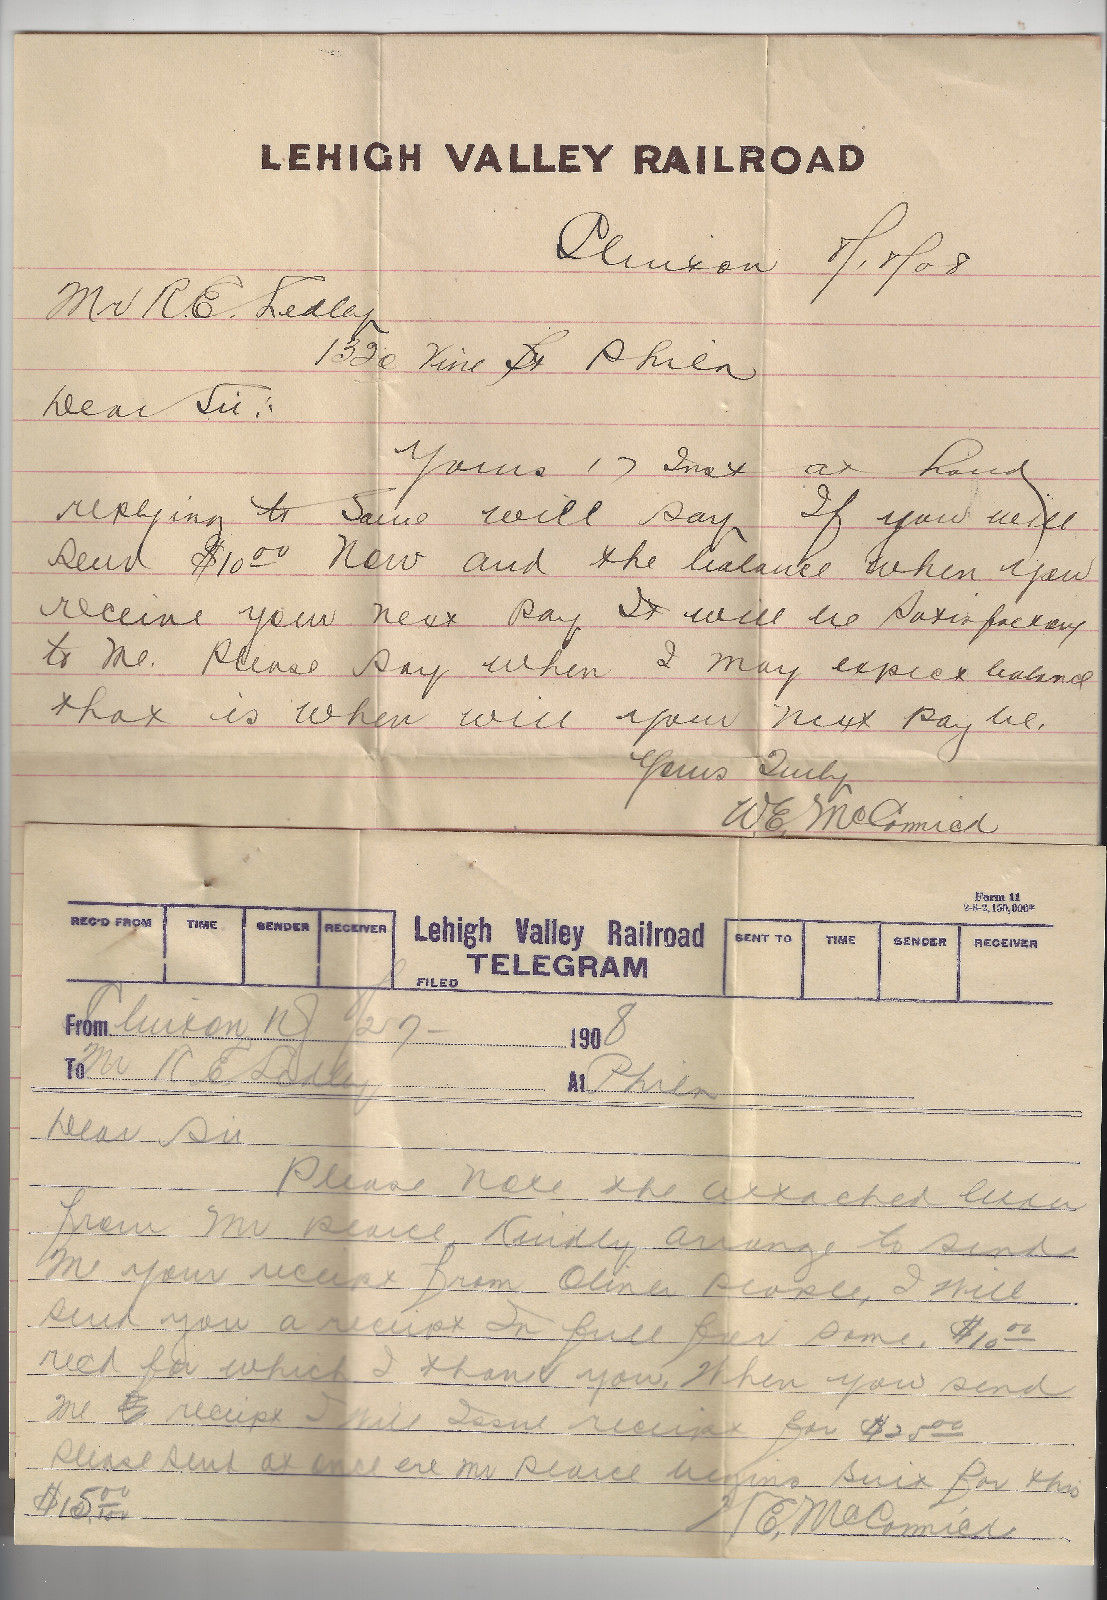 LEHIGH VALLEY RAILROAD
8/18/08
Mr R.E. Sedley
1320 Vine St Phila
Dear Sir:
Yours 17 Inst at hand
replying to Same will say If you will
send $10.00 Now and the balance when you
receive your next pay It will be Satisfactory
to Me. Please Say when I may expect balance
that is when will your next pay be.
Yours Truly
W.E. McCormick
Form 11
REC'D FROM TIME SENDER RECEIVER Lehigh Valley Railroad SENT TO TIME SENDER RECEIVER
TELEGRAM
FILED
From NJ 8/27- 1908
To Mr R E Sedley At Phila
Dear Sir
Please Note the attached letter
from Mr Pearce Kindly arrange to send
Me your receipt from Oliver people, I will
send you a receipt In full for same. $10.00
recd for which I thank you. When you send
Me receipt I will Issue receipt for $25.00
Please send at once ere Mr Pearce begins Suit for this
$15.00 W E, McCormick